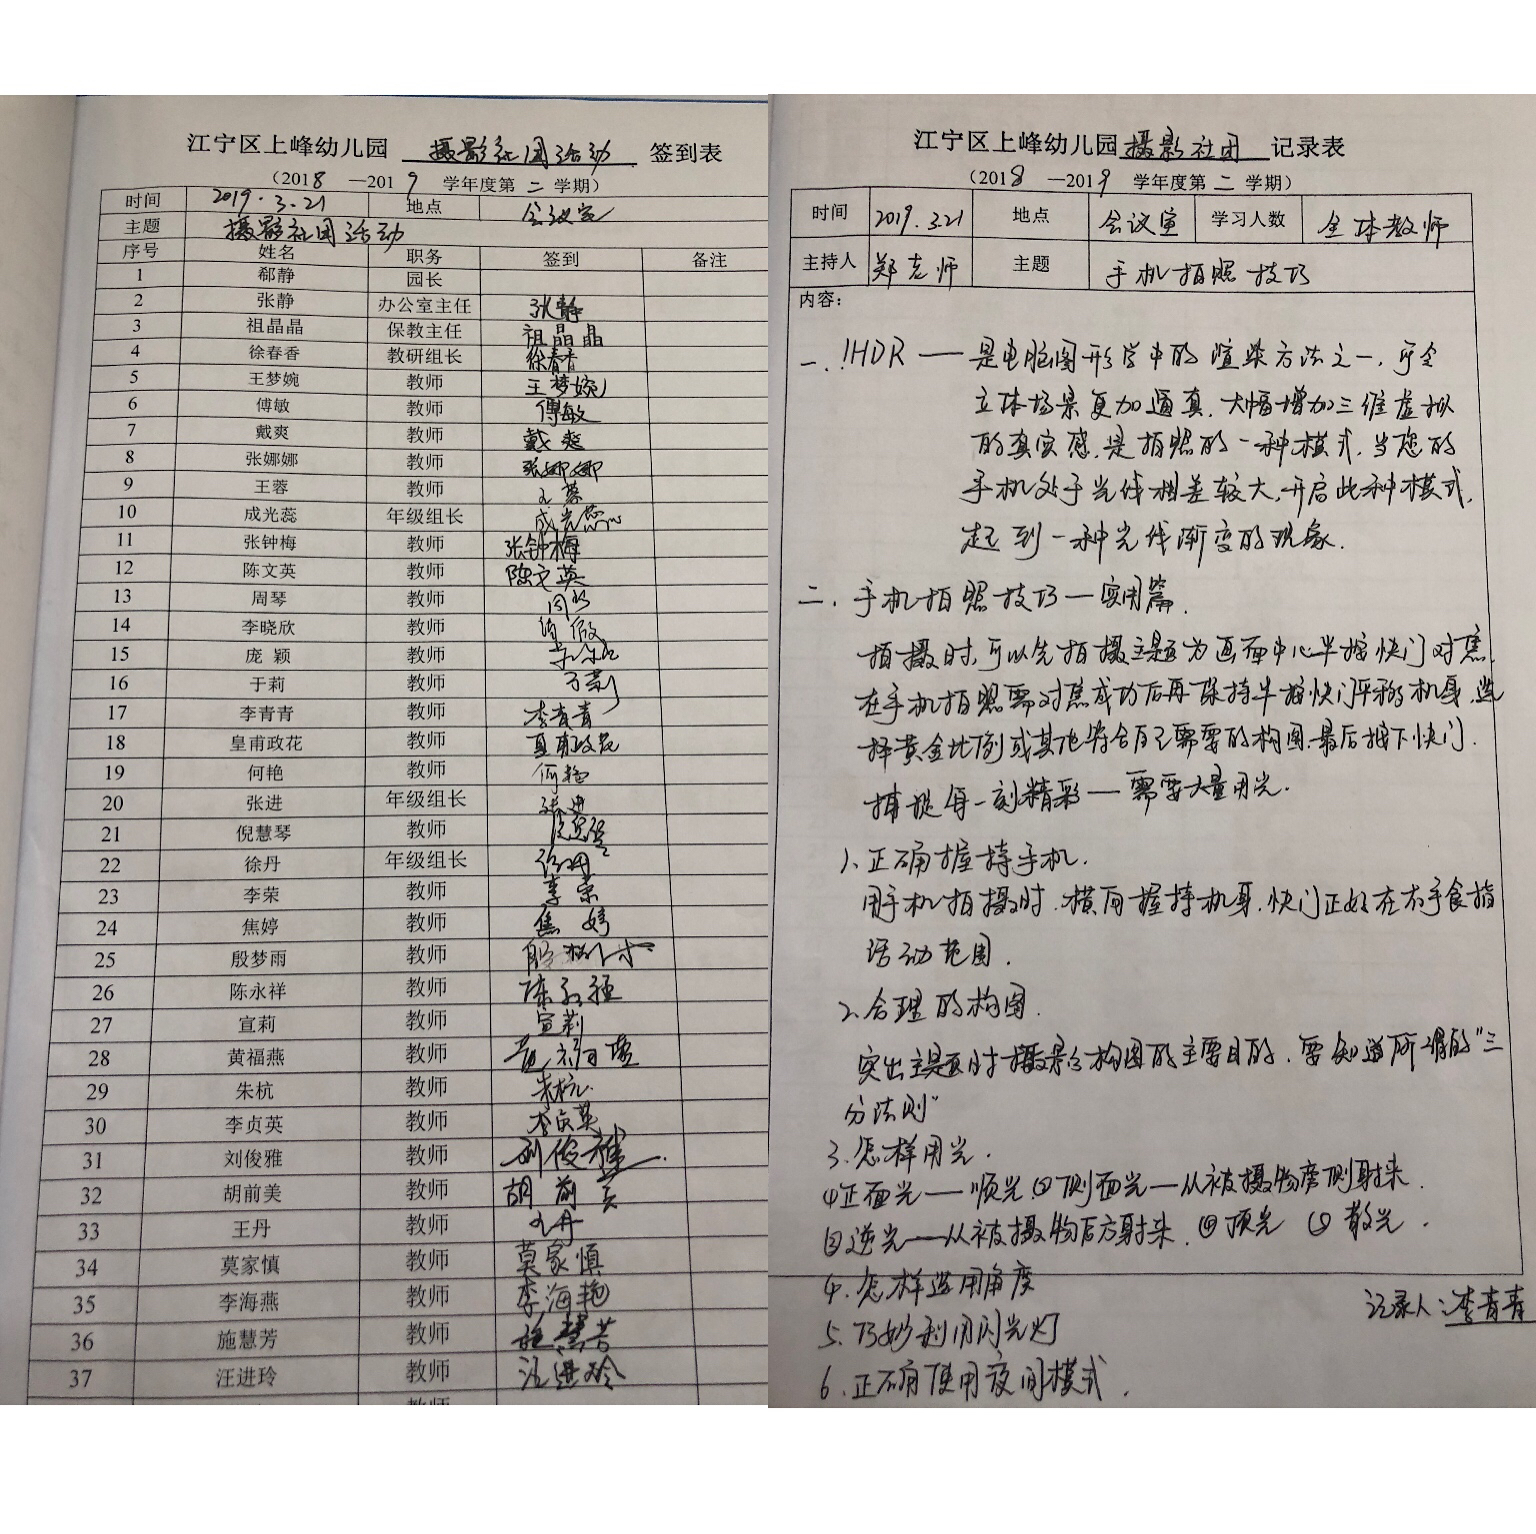 江宁区上峰幼儿园 摄影社团活动 签到表
（2018 —2019 学年度第 二 学期）
时间 2019.3.21 地点 会议室
主题 摄影社团活动
序号 姓名 职务 签到 备注
1 郗静 园长
2 张静 办公室主任 张静
3 祖晶晶 保教主任 祖晶晶
4 徐春香 教研组长 徐春香
5 王梦婉 教师 王梦婉
6 傅敏 教师 傅敏
7 戴爽 教师 戴爽
8 张娜娜 教师 张娜娜
9 王蓉 教师 王蓉
10 成光蕊 年级组长 成光蕊
11 张钟梅 教师 张钟梅
12 陈文英 教师 陈文英
13 周琴 教师
14 李晓欣 教师
15 庞 颖 教师
16 于莉 教师 于莉
17 李青青 教师 李青青
18 皇甫政花 教师 皇甫政花
19 何艳 教师 何艳
20 张进 年级组长 张进
21 倪慧琴 教师
22 徐丹 年级组长 徐丹
23 李荣 教师 李荣
24 焦婷 教师 焦婷
25 殷梦雨 教师
26 陈永祥 教师
27 宣莉 教师 宣莉
28 黄福燕 教师
29 朱杭 教师 朱杭
30 李贞英 教师 李贞英
31 刘俊雅 教师 刘俊雅
32 胡前美 教师 胡前美
33 王丹 教师 王丹
34 莫家慎 教师 莫家慎
35 李海燕 教师 李海艳
36 施慧芳 教师 施慧芳
37 汪进玲 教师 汪进玲
教师
江宁区上峰幼儿园 摄影社团 记录表
（2018 —2019 学年度第 二 学期）
时间 2019.3.21 地点 会议室 学习人数 全体教师
主持人 郑老师 主题 手机拍照技巧
内容：
一.HDR — 是电脑图形学中的渲染方法之一，可令
立体场景更加逼真，大幅增加三维虚拟
的真实感，是拍照的一种模式，当您的
手机处于光线相差较大，开启此种模式，
起到一种光线渐变的现象.
二. 手机拍照技巧—实用篇.
拍摄时，可以先拍摄主题为画面中心半按快门对焦，
在手机拍照需对焦成功后再保持半按快门平移机身，选
择黄金比例或其他符合自己需要的构图，最后按下快门.
捕捉每一刻精彩—需要大量用光.
1.正确握持手机.
用手机拍摄时，横向握持机身，快门正好在右手食指
活动范围.
2.合理的构图.
突出主题时摄影构图的主要目的，要知道所谓的"三
分法则"
3.怎样用光.
①正面光—顺光 ②侧面光—从被摄物度侧射来.
③逆光—从被摄物后方射来. ④顶光 ⑤散光.
4.怎样选用角度
5.巧妙利用闪光灯
6.正确使用夜间模式.
记录人：李青青